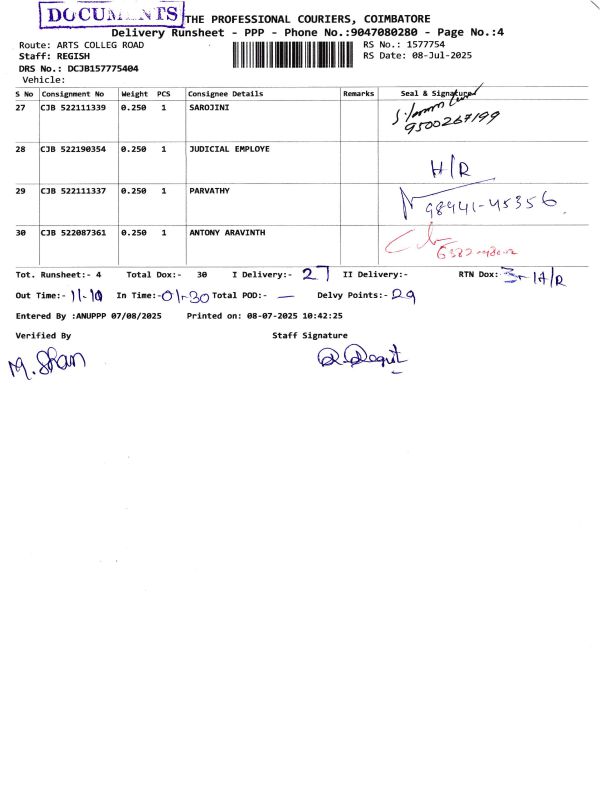 DOCUMENTS
THE PROFESSIONAL COURIERS, COIMBATORE
Delivery Runsheet - PPP - Phone No.:9047080280 - Page No.:4
Route: ARTS COLLEG ROAD RS No.: 1577754
Staff: REGISH RS Date: 08-Jul-2025
DRS No.: DCJB157775404
Vehicle:
S No Consignment No Weight PCS Consignee Details Remarks Seal & Signature
27 CJB 522111339 0.250 1 SAROJINI
9500267199
28 CJB 522190354 0.250 1 JUDICIAL EMPLOYE H/R
29 CJB 522111337 0.250 1 PARVATHY 98441-45356
30 CJB 522087361 0.250 1 ANTONY ARAVINTH
Tot. Runsheet:- 4 Total Dox:- 30 I Delivery:- 27 II Delivery:- RTN Dox: 3- H/R
Out Time:- 11-10 In Time:- 01-30 Total POD:- — Delvy Points:- 29
Entered By :ANUPPP 07/08/2025 Printed on: 08-07-2025 10:42:25
Verified By Staff Signature
M. Shan